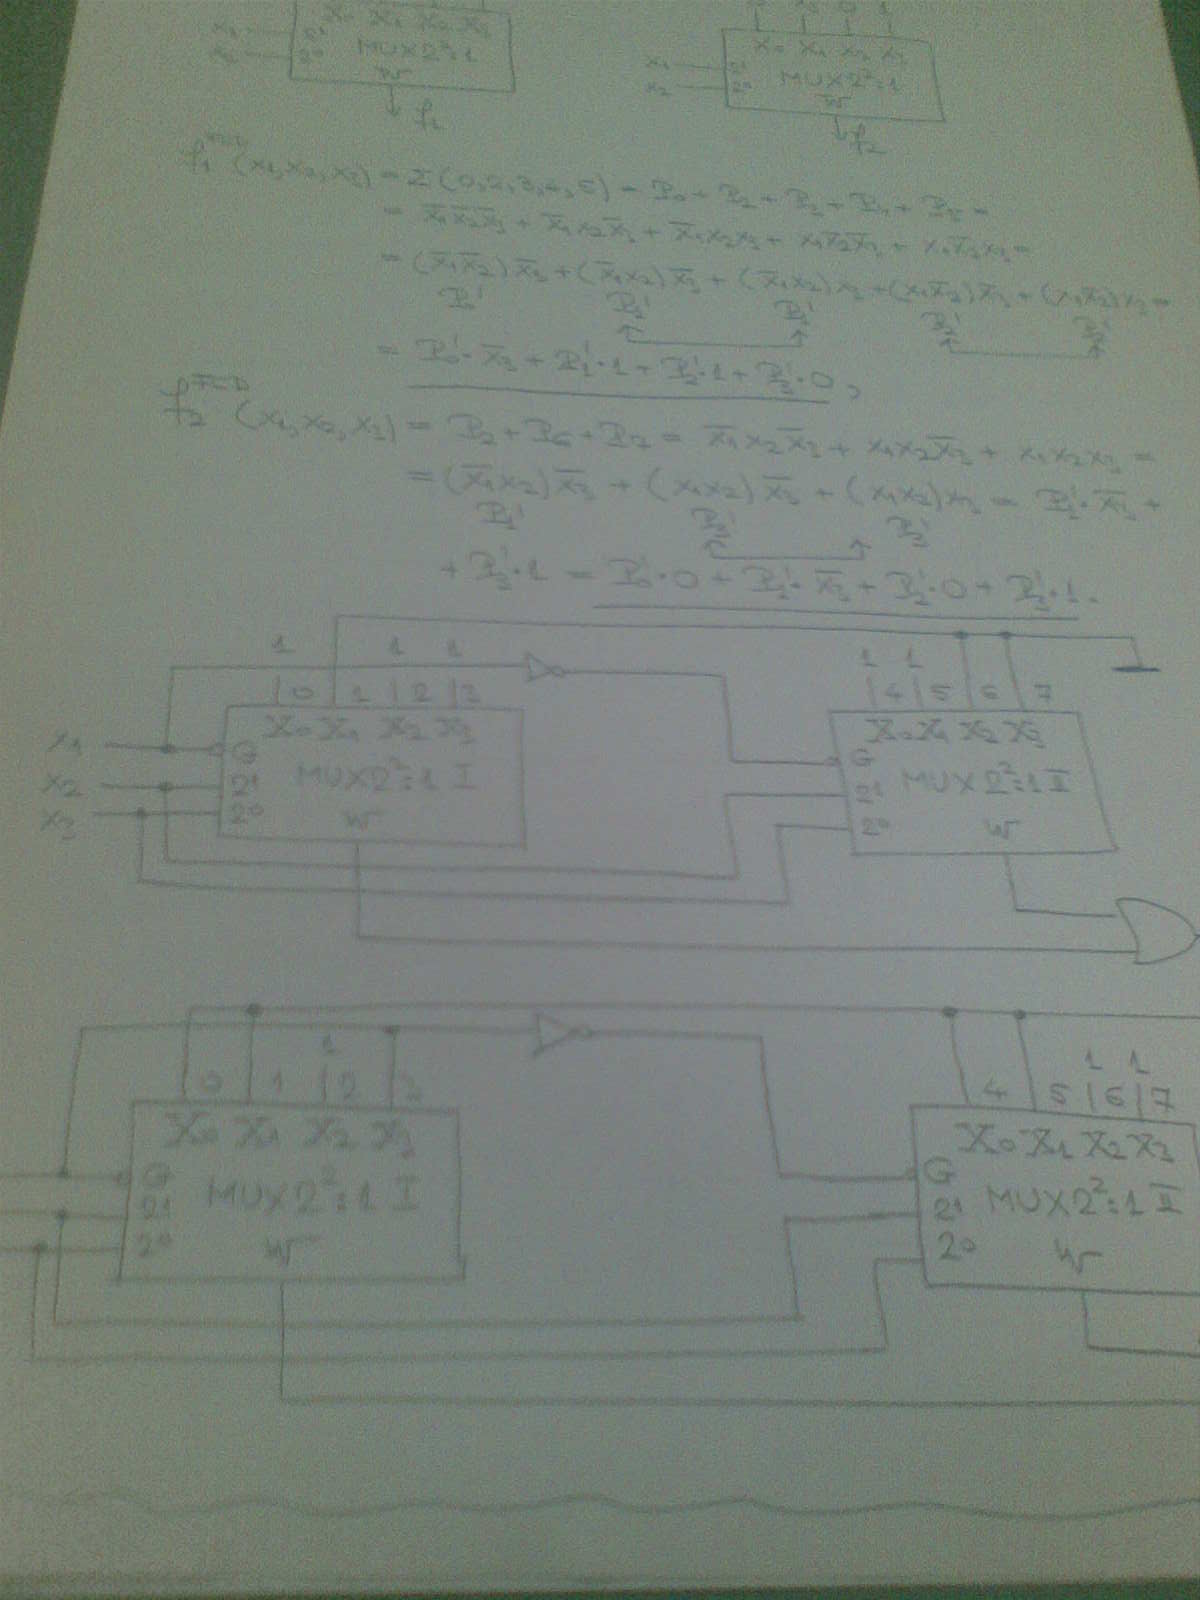 X₀ X₁ X₂ X₃
x₁ 2¹ MUX2²:1
x₂ 2⁰ W
f₁
0 x̄₃ 0 1
X₀ X₁ X₂ X₃
x₁ 2¹ MUX2²:1
x₂ 2⁰ W
f₂
(x₁,x₂,x₃) = Σ(0,2,3,4,5) = P₀ + P₂ + P₃ + P₄ + P₅ =
= x̄₁x̄₂x̄₃ + x̄₁x₂x̄₃ + x̄₁x₂x₃ + x₁x̄₂x̄₃ + x₁x̄₂x₃ =
= (x̄₁x̄₂)x̄₃ + (x̄₁x₂)x̄₃ + (x̄₁x₂)x₃ + (x₁x̄₂)x̄₃ + (x₁x̄₂)x₃ =
= P₀'·x̄₃ + P₁'·1 + P₂'·1 + P₃'·0,
f₂ (x₁,x₂,x₃) = P₂ + P₆ + P₇ = x̄₁x₂x̄₃ + x₁x₂x̄₃ + x₁x₂x₃ =
= (x̄₁x₂)x̄₃ + (x₁x₂)x̄₃ + (x₁x₂)x₃ = P₁'·x̄₃ +
P₁' P₃' P₃'
+ P₃'·1 = P₀'·0 + P₁'·x̄₃ + P₂'·0 + P₃'·1.
1 1 1
0 1 2 3
X₀ X₁ X₂ X₃
x₁ G
x₂ 2¹ MUX2²:1 I
x₃ 2⁰ W
1 1
4 5 6 7
X₀ X₁ X₂ X₃
G
2¹ MUX2²:1 II
2⁰ W
1
0 1 2 3
X₀ X₁ X₂ X₃
G
2¹ MUX2²:1 I
2⁰ W
1 1
4 5 6 7
X₀ X₁ X₂ X₃
G
2¹ MUX2²:1 II
2⁰ W